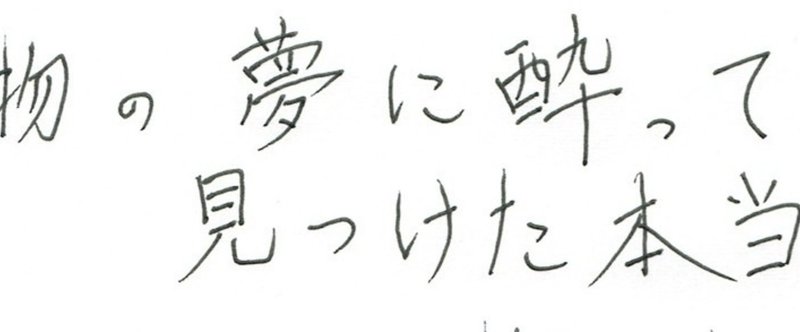 物の夢に酔って
見つけた本当